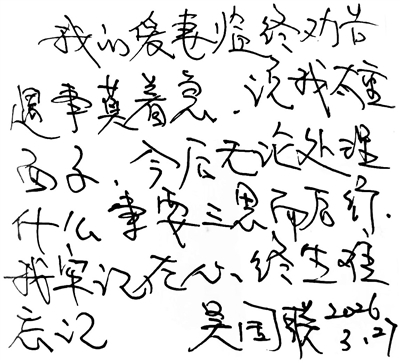 我的爱妻临终劝告
遇事莫着急.说我太重
面子.今后无论处理
什么事要三思而后行.
我牢记在心、终生难
忘记 吴国联 2026 3.27